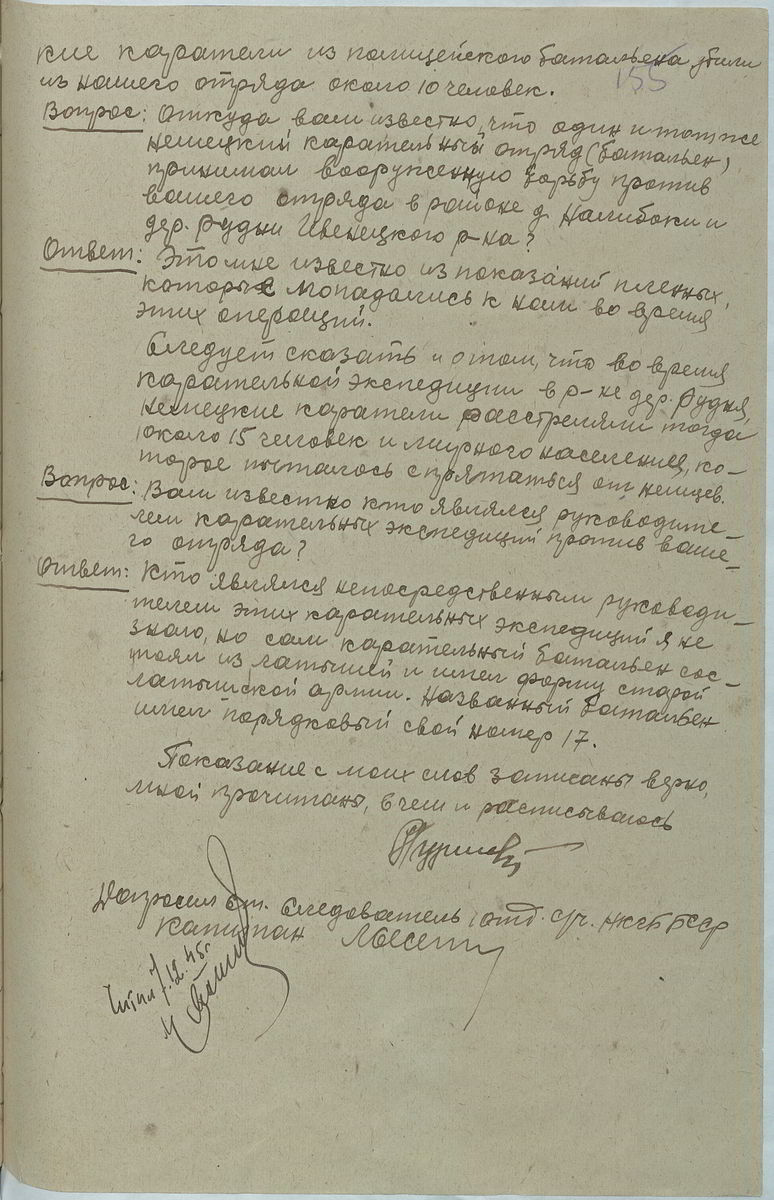 155
кие каратели из полицейского батальена убили
из нашего отряда около 10 человек.
Вопрос: Откуда вам известно, что один и тот же
немецкий карательный отряд (батальен)
принимал вооруженную борьбу против
вашего отряда в районе д. Налибоки и
дер. Рудни Ивенецкого р-на?
Ответ: Это мне известно из показаний пленных,
которые попадались к нам во время
этих операций.
Следует сказать и о том, что во время
карательной экспедиции в р-не дер. Рудня,
немецкие каратели расстреляли тогда
около 15 человек и мирного населения, ко-
торое пыталось спрятаться от немцев.
Вопрос: Вам известно кто являлся руководите-
лем карательных экспедиций против ваше-
го отряда?
Ответ: Кто являлся непосредственным руководи-
телем этих карательных экспедиций я не
знаю, но сам карательный батальен сос-
тоял из латышей и имел форму старой
латышской армии. Названный батальен
имел порядковый свой номер 17.
Показание с моих слов записаны верно,
мной прочитаны, в чем и расписываюсь
Допросил Ст. Следователь 1 отд. с/ч. НКГБ БССР
Капитан